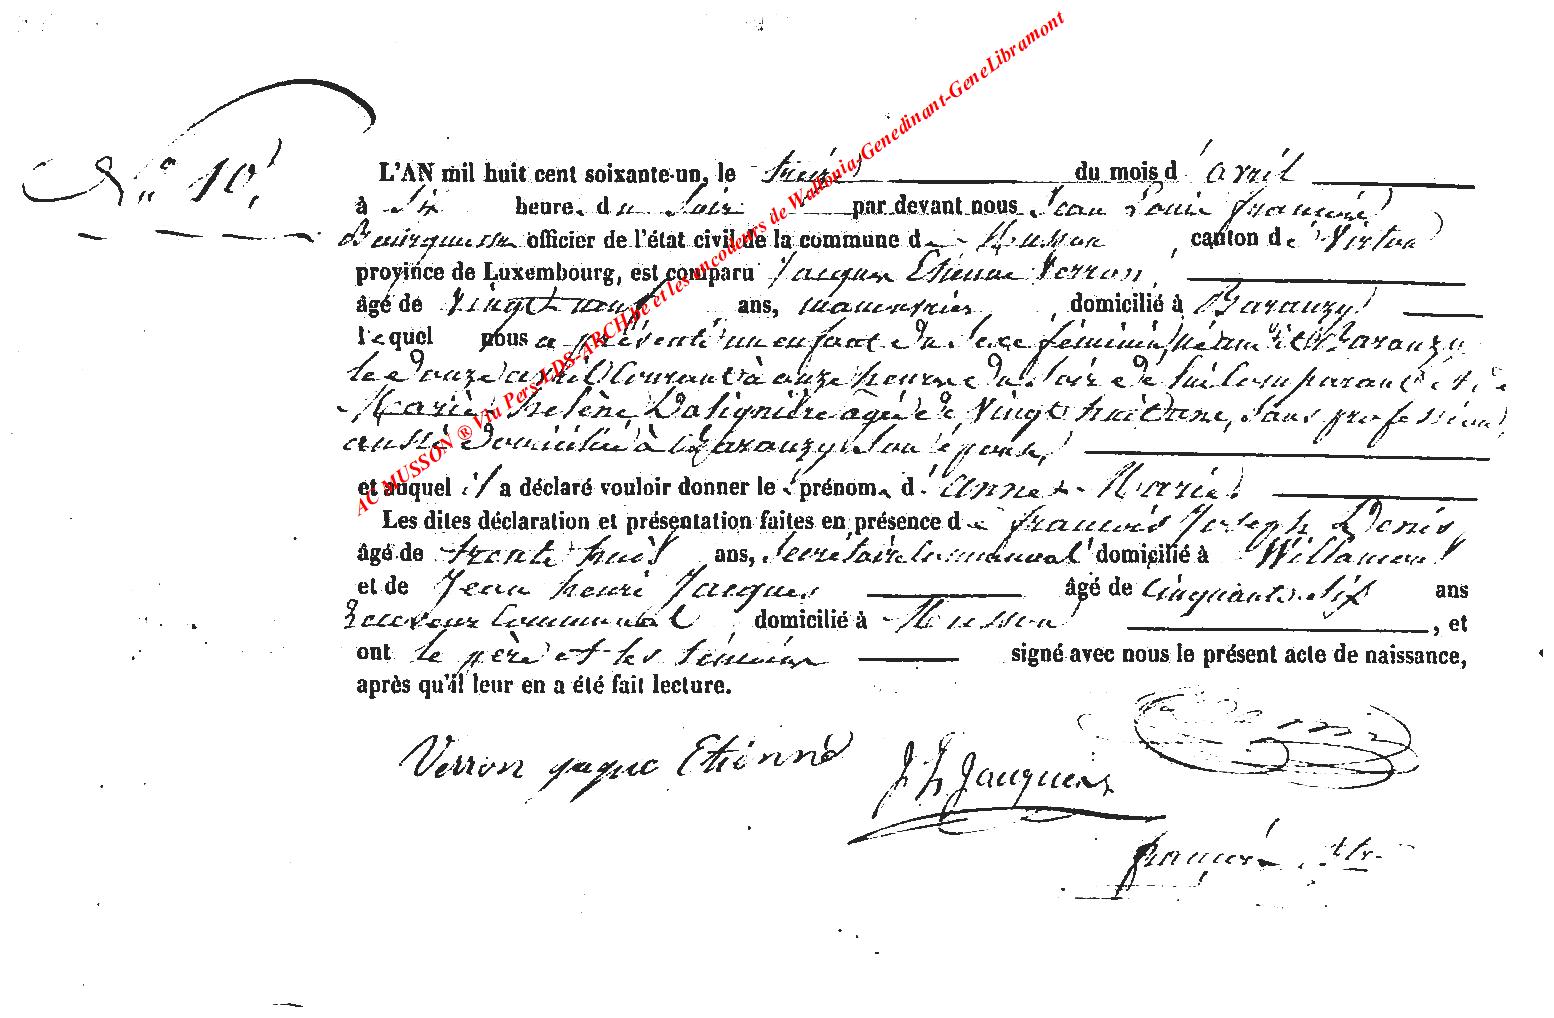 N.° 10.
L'AN mil huit cent soixante-un, le treize du mois d'avril
à six heure. du soir par devant nous Jean Louis françois
officier de l'état civil de la commune de Musson canton de Virton
province de Luxembourg, est comparu Jacques Etienne Verron,
âgé de vingt neuf ans, manouvrier, domicilié à Baranzy
lequel nous a présenté un enfant du sexe féminin, né audit Baranzy
le douze avril courant à onze heures du soir de lui comparant et de
Marie hélène Dalignière agée de vingt huit ans, sans profession,
aussi domiciliée à Baranzy son épouse,
et auquel il a déclaré vouloir donner les prénoms d'anne-Marie
Les dites déclaration et présentation faites en présence de françois Joseph Denis,
âgé de trente huit ans, Secrétaire Communal domicilié à Willancourt
et de Jean henri Jacques âgé de cinquante six ans
Receveur Communal domicilié à Musson, et
ont le père et les témoins signé avec nous le présent acte de naissance,
après qu'il leur en a été fait lecture.
Verron jaque Etienne
J h Jacques
Denis
françois
AC MUSSON ® Via Pers-LDS-ARCH.be et les encodeurs de Wallonia-Genedinant-GeneLibramont